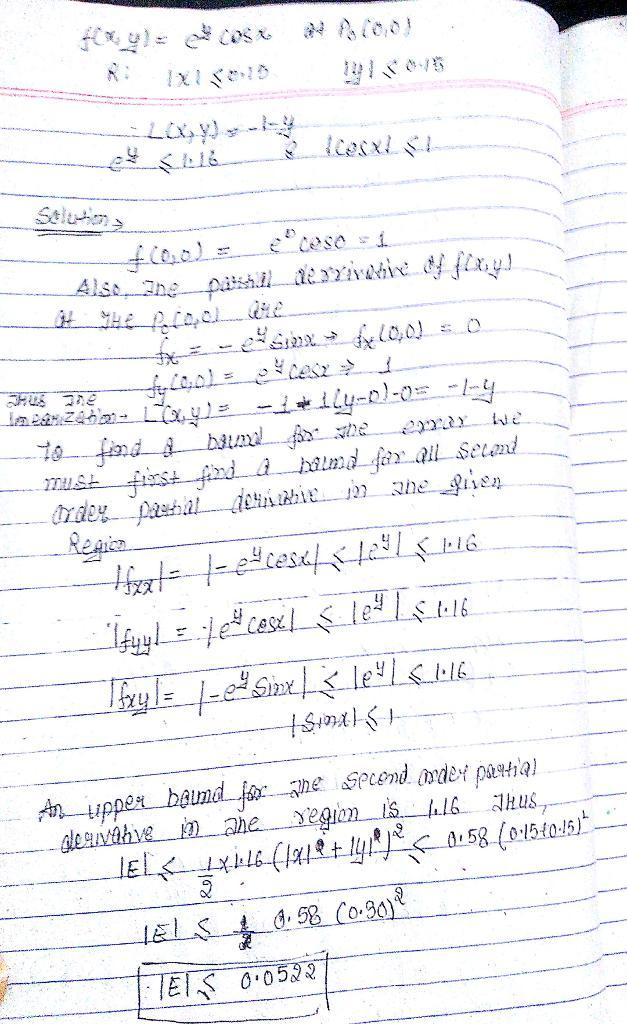 f(x,y) = e^y cosx at P₀(0,0)
R: |x| ≤ 0.15 |y| ≤ 0.15
L(x,y) = -1-y
e^y ≤ 1.16 & |cosx| ≤ 1
Solution →
f(0,0) = e⁰ cos0 = 1
Also, The partial derrivative of f(x,y)
at the P₀(0,0) are
fx = -e^y sinx → fx(0,0) = 0
fy(0,0) = e^y cosx → 1
Thus the
linearization → L(x,y) = -1 + 1(y-0)-0 = -1-y
To find a bound for the error we
must first find a bound for all second
order partial derivative in the given
Region
|fxx| = |-e^y cosx| ≤ |e^y| ≤ 1.16
|fyy| = |e^y cosx| ≤ |e^y| ≤ 1.16
|fxy| = |-e^y sinx| ≤ |e^y| ≤ 1.16
|sinx| ≤ 1
An upper bound for the second order partial
derivative in the region is 1.16 Thus,
|E| ≤ 1/2 × 1.16 (|x| + |y|)² ≤ 0.58 (0.15+0.15)²
|E| ≤ 0.58 (0.30)²
|E| ≤ 0.0522